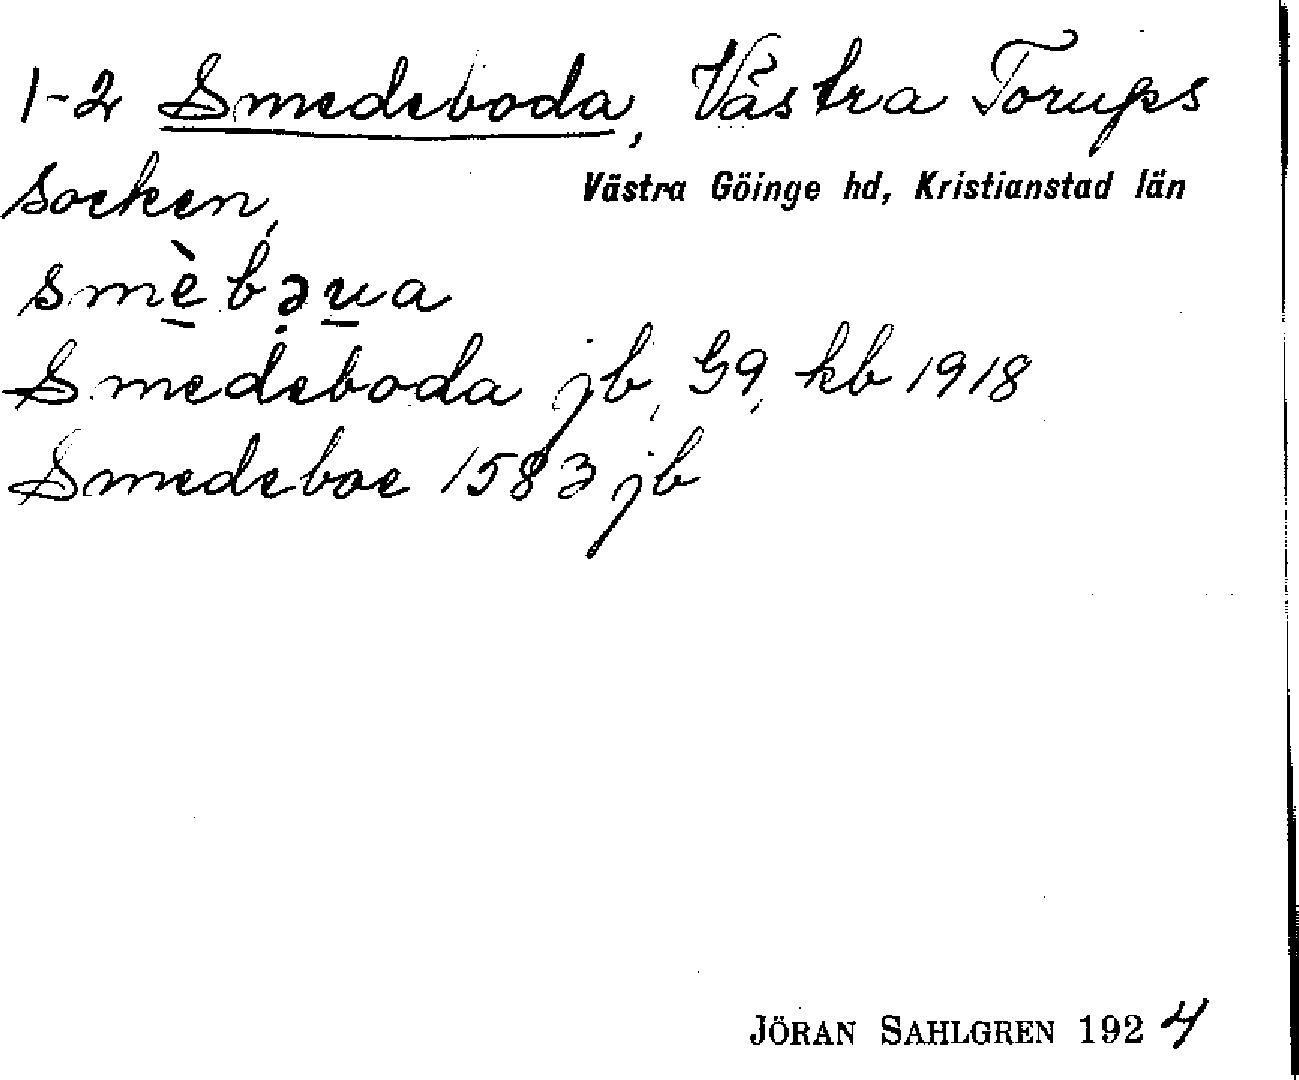 1-2 Smedeboda, Västra Torups
socken,
Västra Göinge hd, Kristianstad län
smè̠bə̣u̠a
Smedeboda jb, G9, kb 1918
Smedeboe 1583 jb
JÖRAN SAHLGREN 1924